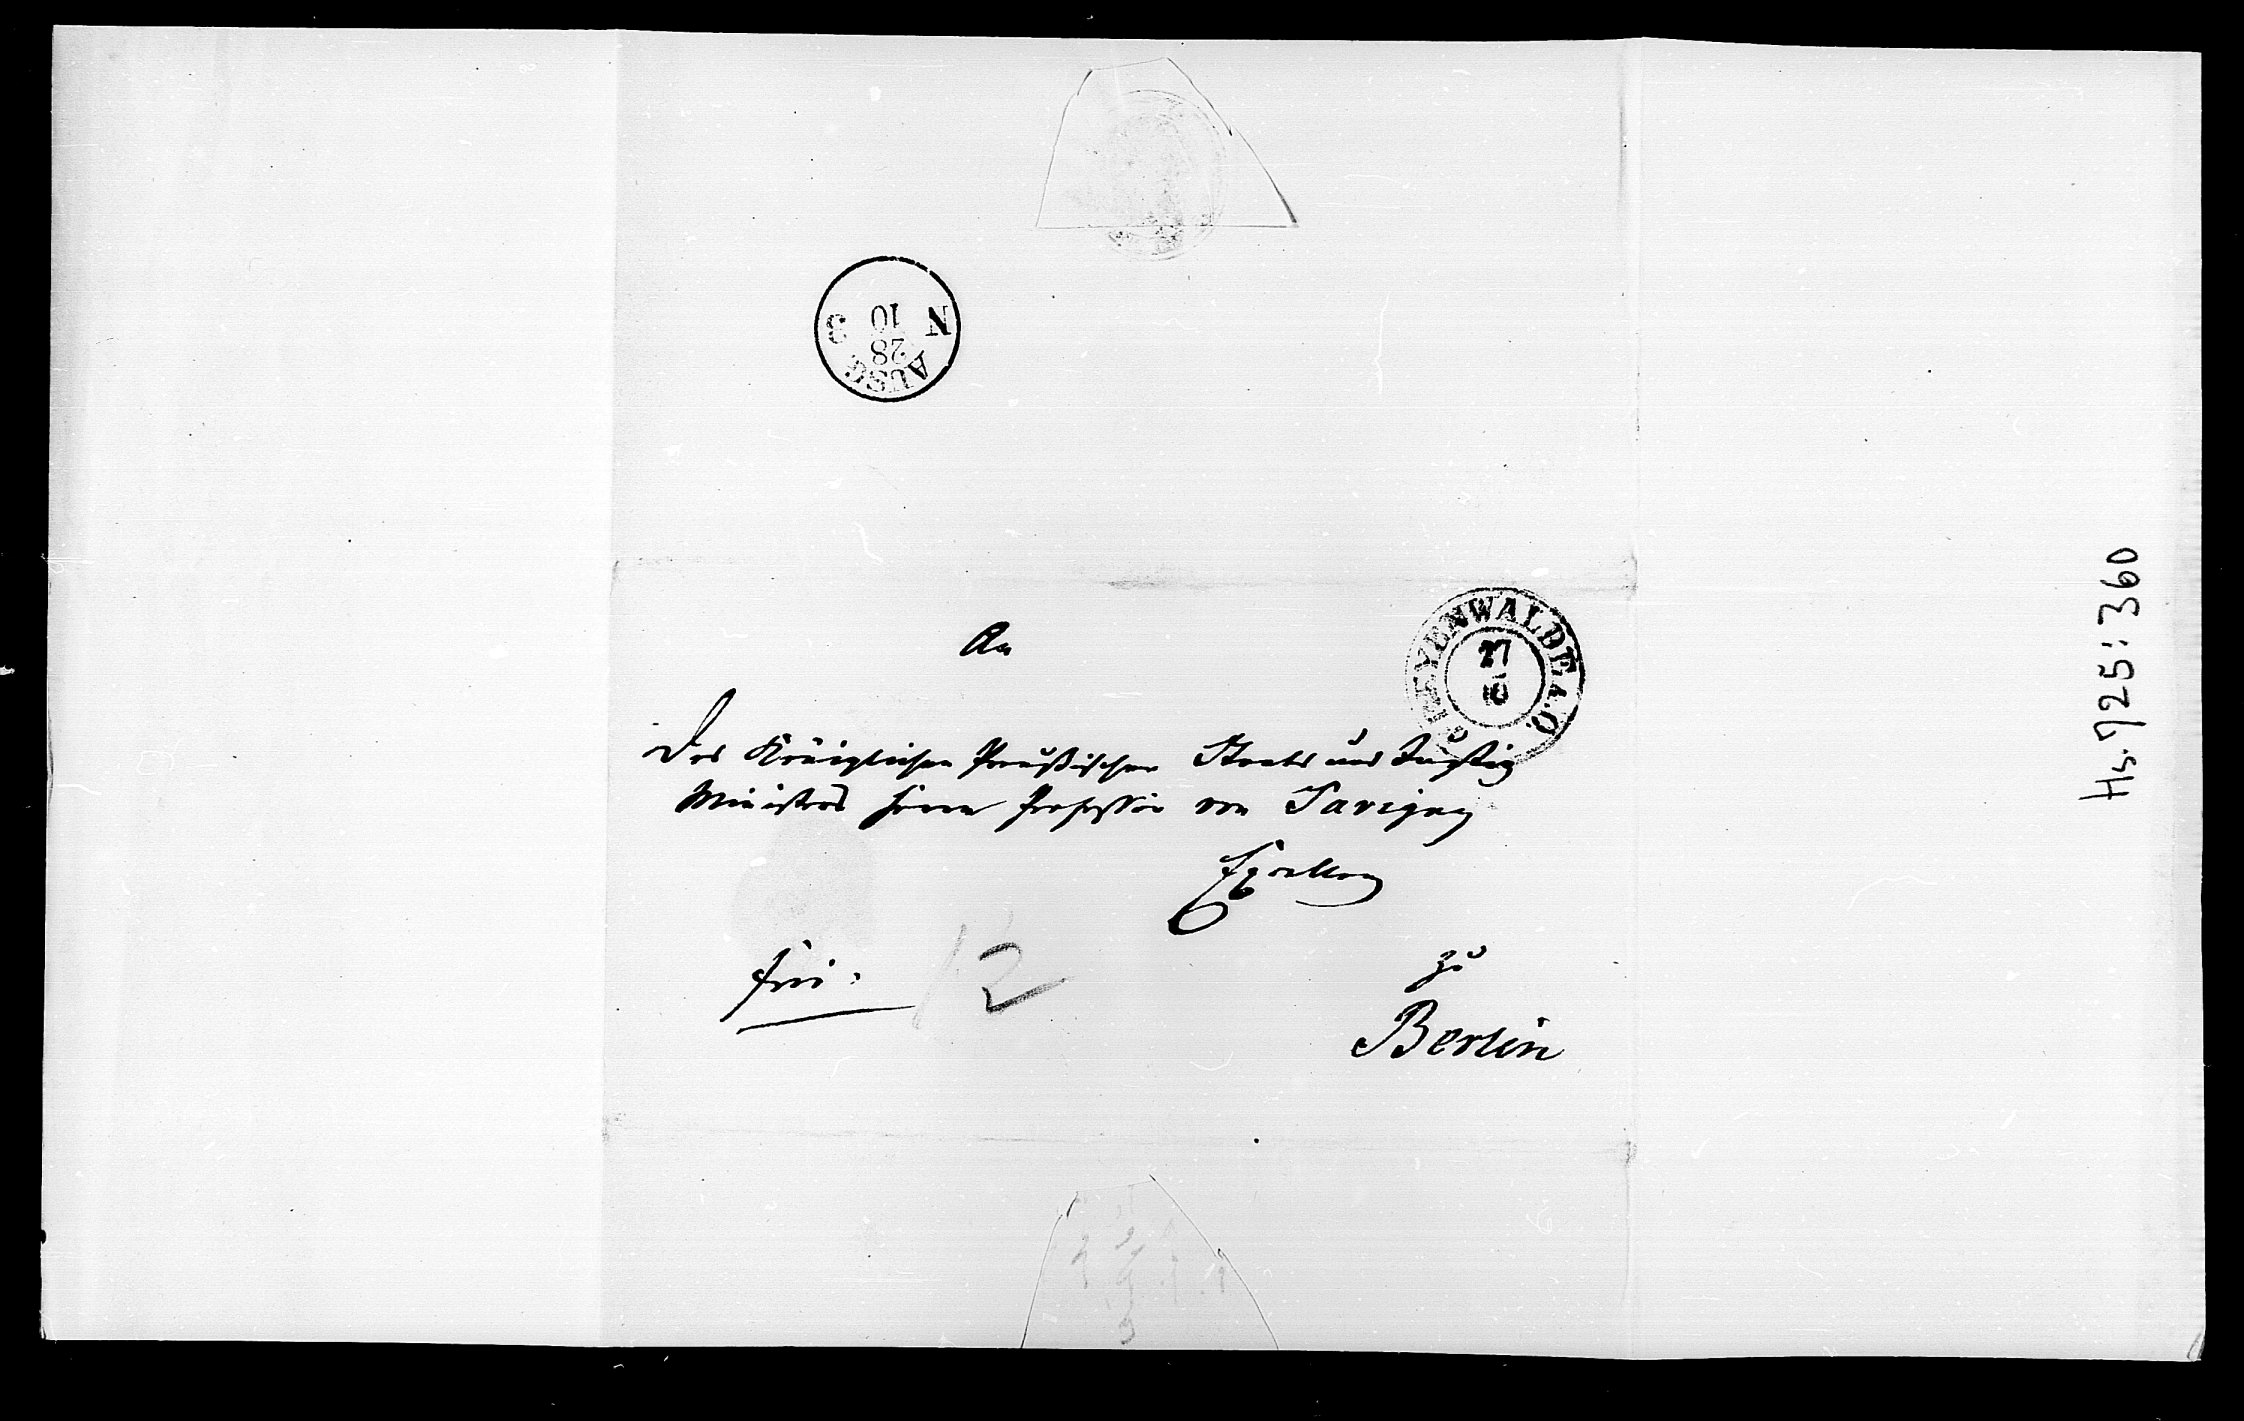 AUSG
28
10
N 3
An
FREYENWALDE A.O.
27
10
Des Königlichen Preußischen Staats und Justiz
Ministers Herrn Professor von Savigny
Excellenz
frei:
12
zu
Berlin
Hs. 725: 360